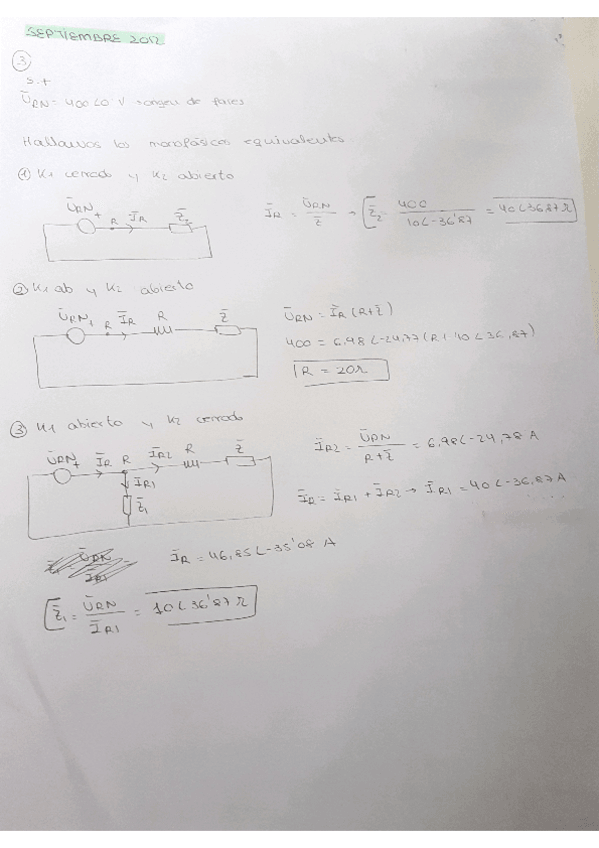 SEPTIEMBRE 2012
③
S.t
ŪRN = 400∠0 V → origen de fases
Hallamos los monofásicos equivalentes
① K1 cerrado y K2 abierto
ŪRN + R ĪR Z̄2
ĪR = ŪRN / Z̄ → Z̄2 = 400 / 10∠-36'87 = 40∠36'87 Ω
② K1 ab y K2 abierto
ŪRN + R ĪR R Z̄
ŪRN = ĪR (R+Z̄)
400 = 6,98∠-24,77 (R+40∠36,87)
R = 20Ω
③ K1 abierto y K2 cerrado
ŪRN + ĪR R ĪR2 R Z̄
ĪR1
Z̄1
ĪR2 = ŪRN / R+Z̄ = 6,98∠-24,78 A
ĪR = ĪR1 + ĪR2 → ĪR1 = 40∠-36,87 A
ĪR = 46,85∠-35'08 A
Z̄1 = ŪRN / ĪR1 = 10∠36'87 Ω